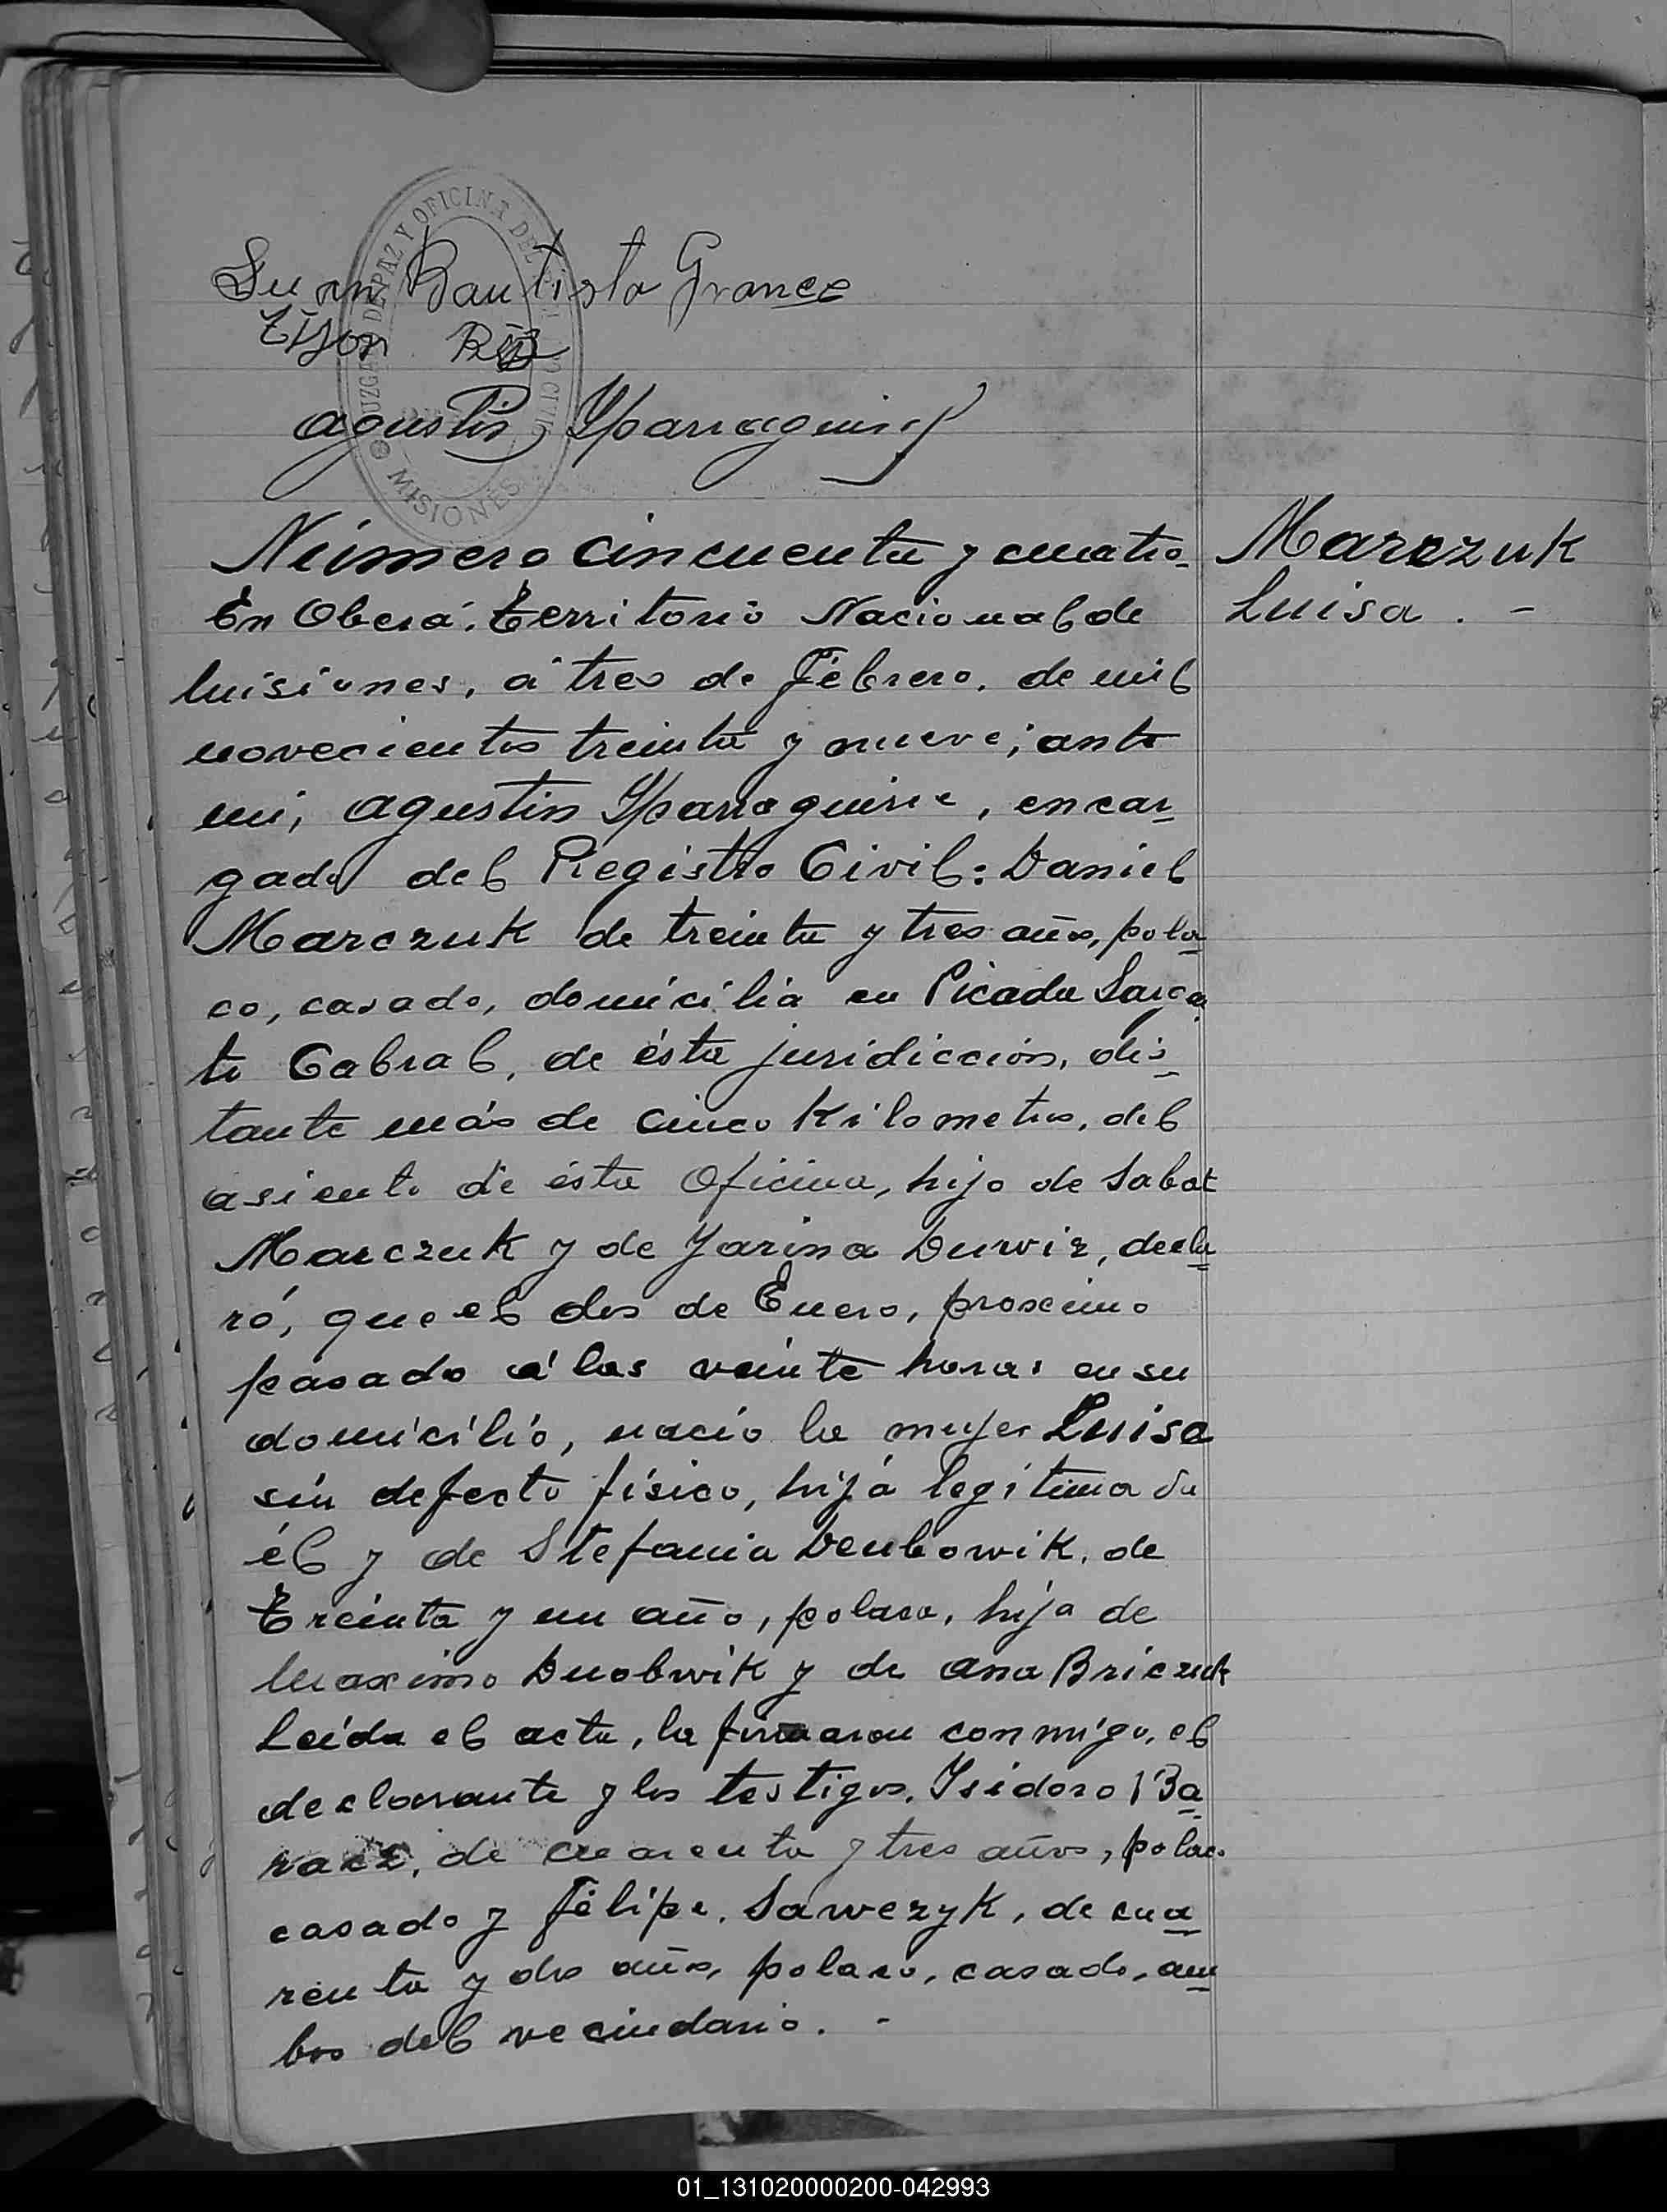 JUZGADO DE PAZ Y OFICINA DEL CIVIL
MISIONES
Juan Bautista Grance
agustin Yparraguirre
Número cincuenta y cuatro_
En Oberá. Territorio Nacional de
Misiones, á tres de Febrero, de mil
novecientos treinta y nueve; ante
mi, agustin Yparraguirre, encar_
gado del Registro Civil: Daniel
Marczuk de treinta y tres años, pola_
co, casado, domicilia en Picada Sargen_
to Cabral, de ésta juridiccion, dis_
tante más de cinco Kilometros, del
asiento de ésta Oficina, hijo de Sabat
Marczuk y de Yarina Durviz, decla_
ró, que el dos de Enero, proximo
pasado á las veinte horas en su
domicilio, nacio la mujer Luisa
sin defecto físico, hija legítima de
él y de Stefania Denbowik, de
Treinta y un año, polaca, hija de
Maximo Duobwik y de Ana Briczuk
Leida el acta, la firmaron conmigo, el
declarante y los testigos, Ysidoro Ba_
racz, de cuarenta y tres años, polaco
casado y Félipe, Sawczyk, de cua_
renta y dos años, polaco, casado, am_
bos del vecindario. -
Marczuk
Luisa. -
01_131020000200-042993